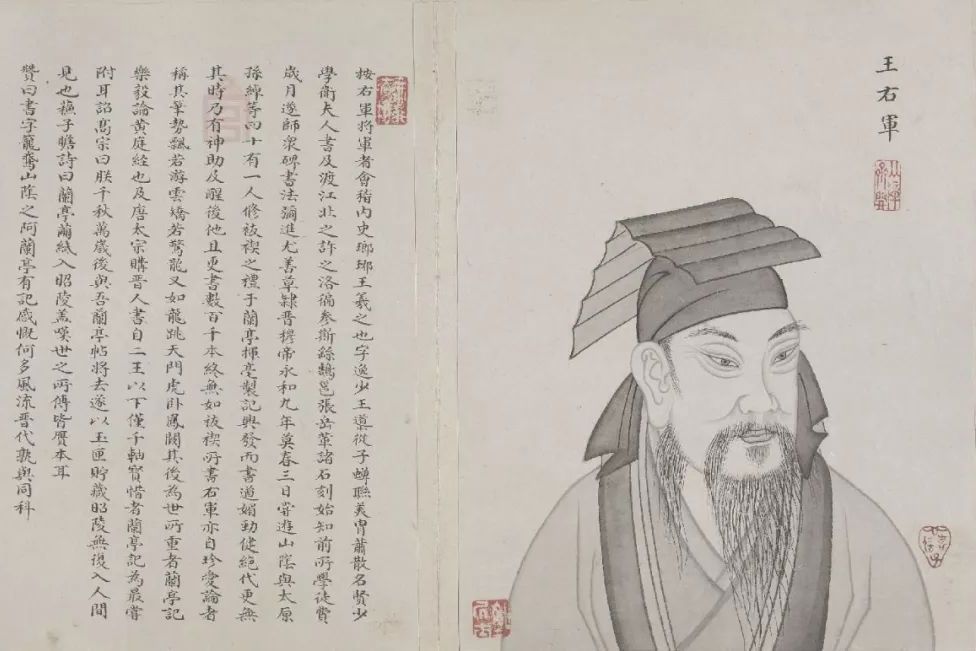 王右軍
按右軍將軍者會稽內史瑯琊王羲之也字逸少王導從子蟬聯美胄蕭散名賢少
學衛夫人書及渡江北之許之洛徧參斯繇鵠邕張岳華諸石刻始知前所學徒費
歲月遂師衆碑書法彌進尤善草隸晉穆帝永和九年莫春三日甞遊山陰與太原
孫綽等四十有一人修祓禊之禮于蘭亭揮毫製記興發而書遒媚勁健絕代更無
其時乃有神助及醒後他日更書數百千本終無如祓禊所書右軍亦自珍愛論者
稱其筆勢飄若游雲矯若驚龍又如龍跳天門虎臥鳳闕其後為世所重者蘭亭記
樂毅論黃庭經也及唐太宗購晉人書自二王以下僅千軸寶惜者蘭亭記為最嘗
附耳謟高宗曰朕千秋萬歲後與吾蘭亭帖將去遂以玉匣貯藏昭陵無復入人間
見也蘇子瞻詩曰蘭亭繭紙入昭陵盖嘆世之所傳皆贋本耳
贊曰書字籠鵞山陰之阿蘭亭有記感慨何多風流晉代孰與同科